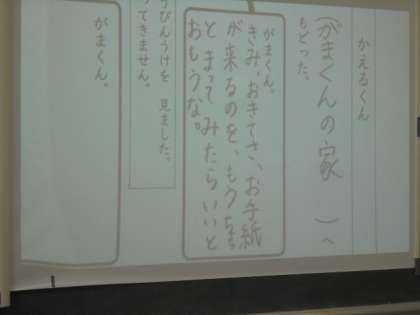 かえるくん
(がまくんの家　)へ
もどった。
がまくん。
きみ、おきてさ、お手紙
が来るのを、もうちょっ
と まって みたら いいと
おもうな。
うびんうけを 見ました。
ってきません。
がまくん。